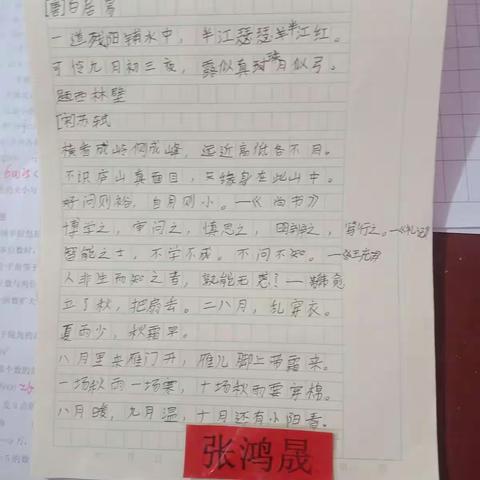 [唐]白居易
一道残阳铺水中，半江瑟瑟半江红。
可怜九月初三夜，露似真珠月似弓。
题西林壁
[宋]苏轼
横看成岭侧成峰，远近高低各不同。
不识庐山真面目，只缘身在此山中。
好问则裕，自用则小。—《尚书》
博学之，审问之，慎思之，明辨之，笃行之。—《礼记》
智能之士，不学不成，不问不知。—《王充》
人非生而知之者，孰能无惑？—韩愈
立了秋，把扇丢。二八月，乱穿衣。
夏雨少，秋霜早。
八月里来雁门开，雁儿脚上带霜来。
一场秋雨一场寒，十场秋雨要穿棉。
八月暖，九月温，十月还有小阳春。
张鸿晟